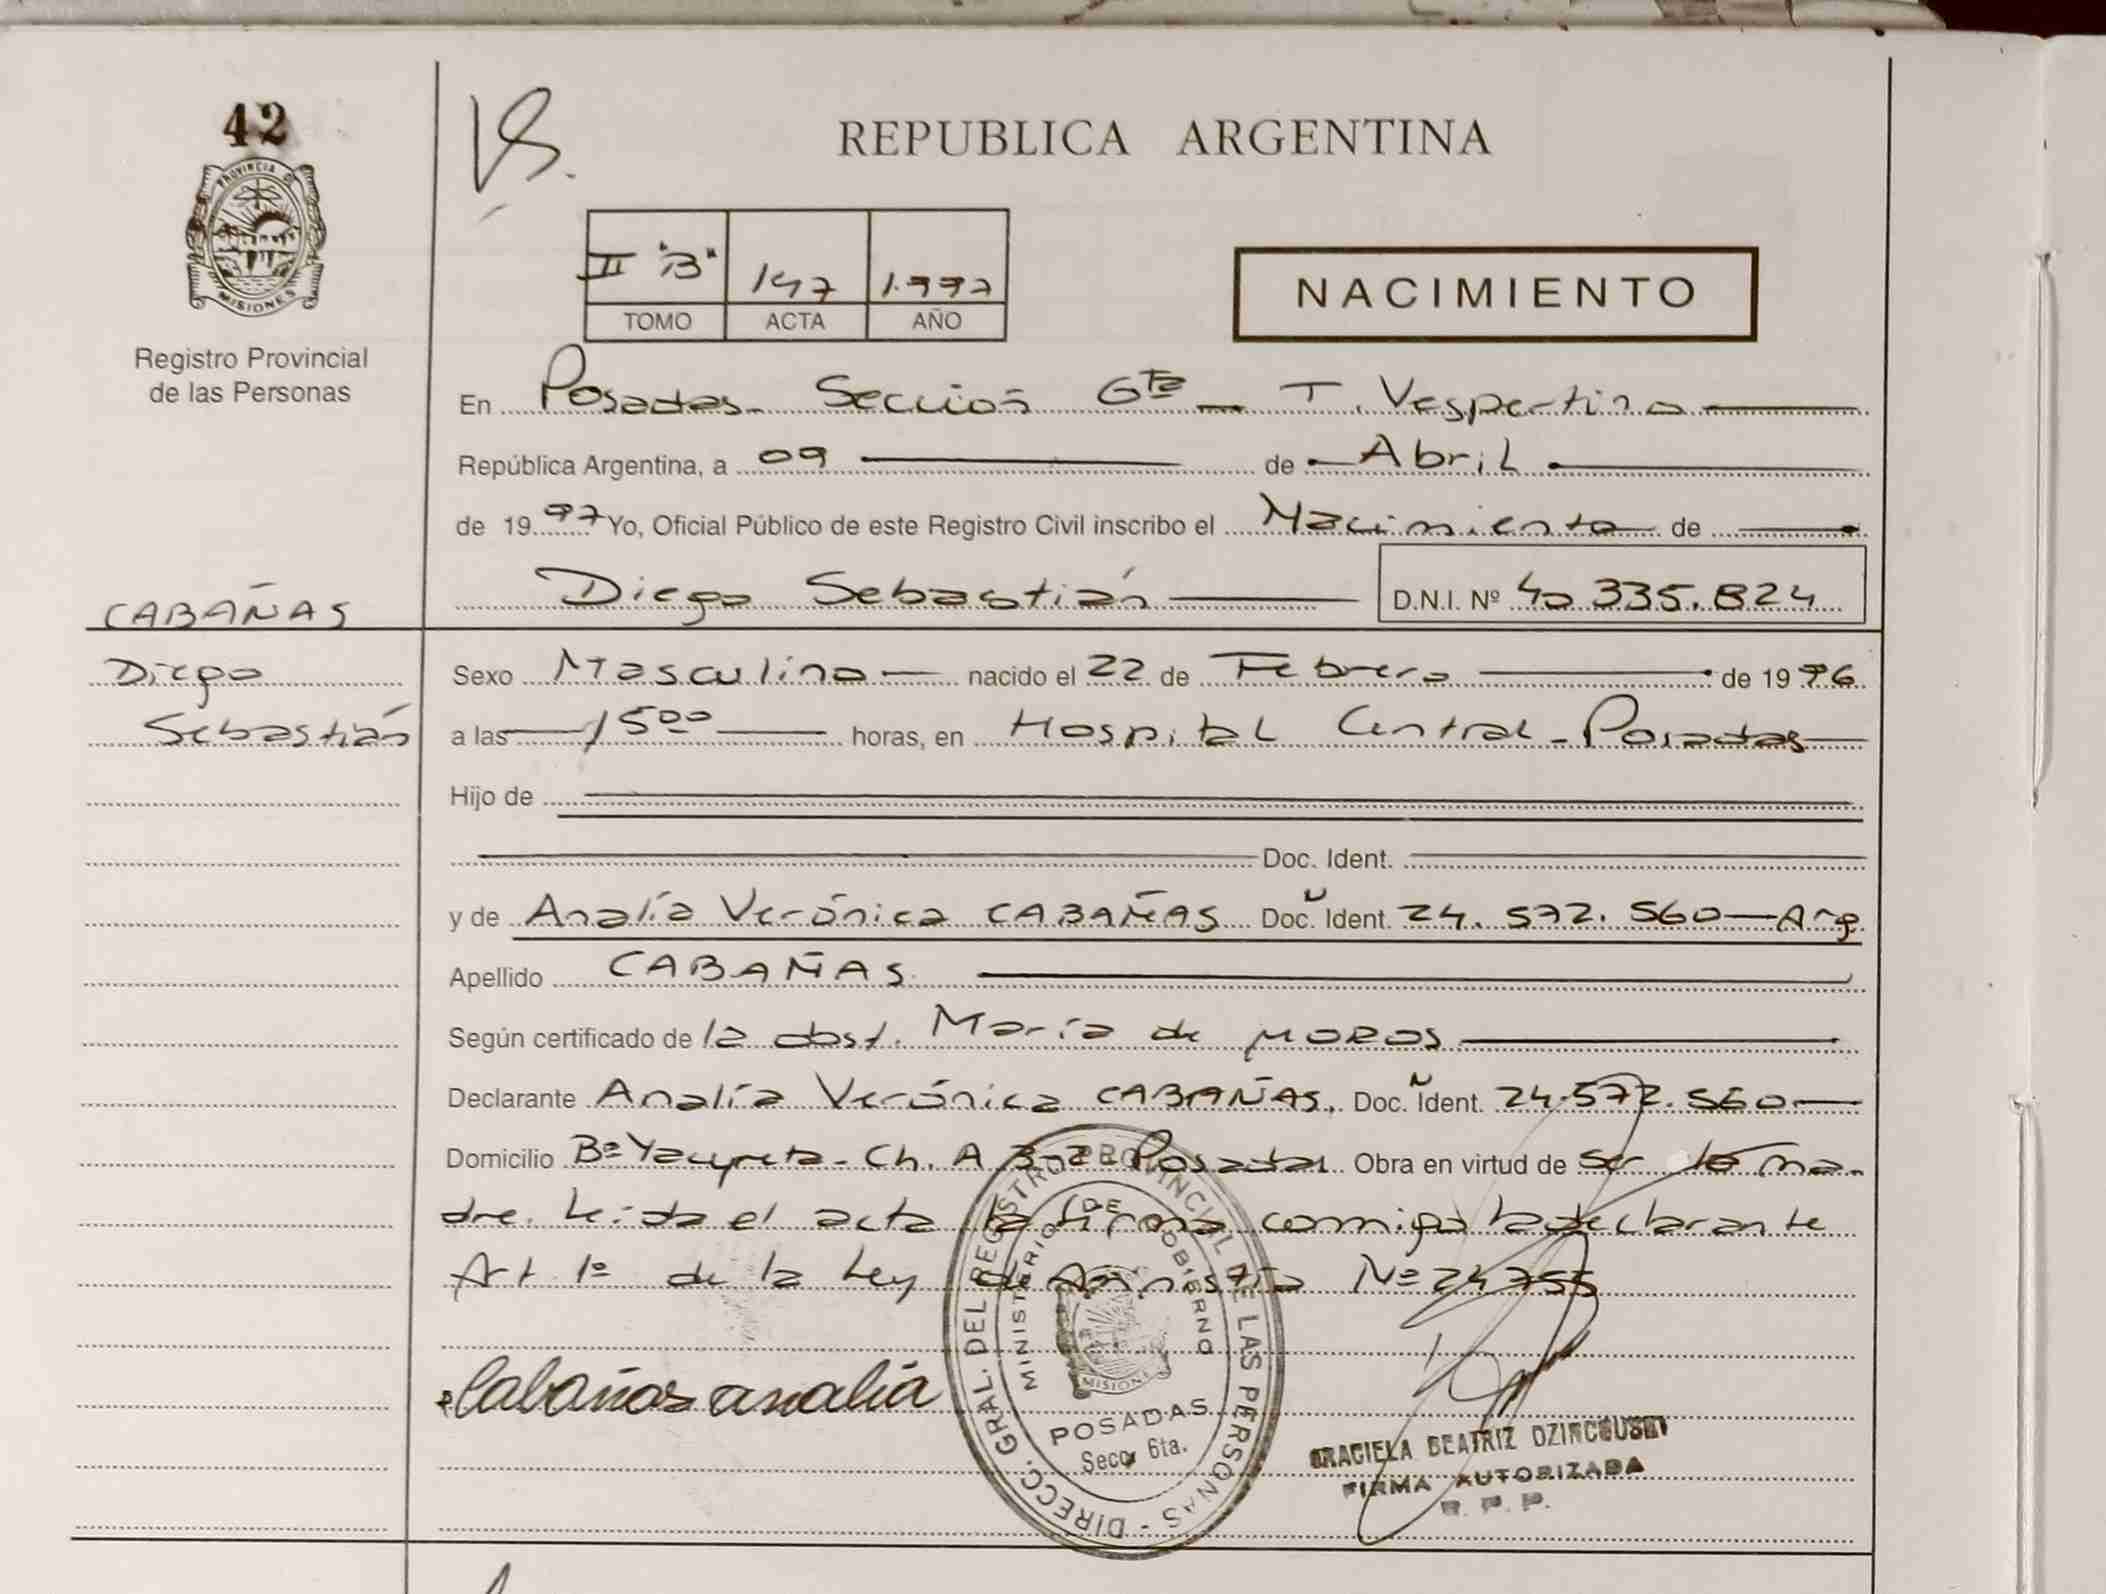 42
PROVINCIA D
MISIONES
Registro Provincial
de las Personas
REPUBLICA ARGENTINA
II "B" 147 1.997
TOMO ACTA AÑO
NACIMIENTO
En Posadas Sección 6ta T. Vespertino
República Argentina, a 09 de Abril
de 1997 Yo, Oficial Público de este Registro Civil inscribo el Nacimiento de
CABAÑAS
Diego Sebastián D.N.I. Nº 40.335.824
Diego
Sebastián
Sexo Masculino nacido el 22 de Febrero de 1996
a las 15 00 horas, en Hospital Central - Posadas
Hijo de
Doc. Ident.
y de Analía Verónica CABAÑAS Doc. Ident. 24.572.560 - Arg.
Apellido CABAÑAS
Según certificado de la obst. María de MOROS
Declarante Analía Verónica CABAÑAS, Doc. Ident. 24.572.560
Domicilio Bº Yacyreta - Ch. A Posadas Obra en virtud de ser la ma
dre. Leida el acta la firma conmigo la declarante
Art 1º de la Ley de Amnistía Nº 24755
Cabañas analia
DIRECC. GRAL. DEL REGISTRO PROVINCIAL DE LAS PERSONAS
MINISTERIO DE GOBIERNO
MISIONES
POSADAS
Secc. 6ta.
GRACIELA BEATRIZ
FIRMA AUTORIZADA
R. P. P.